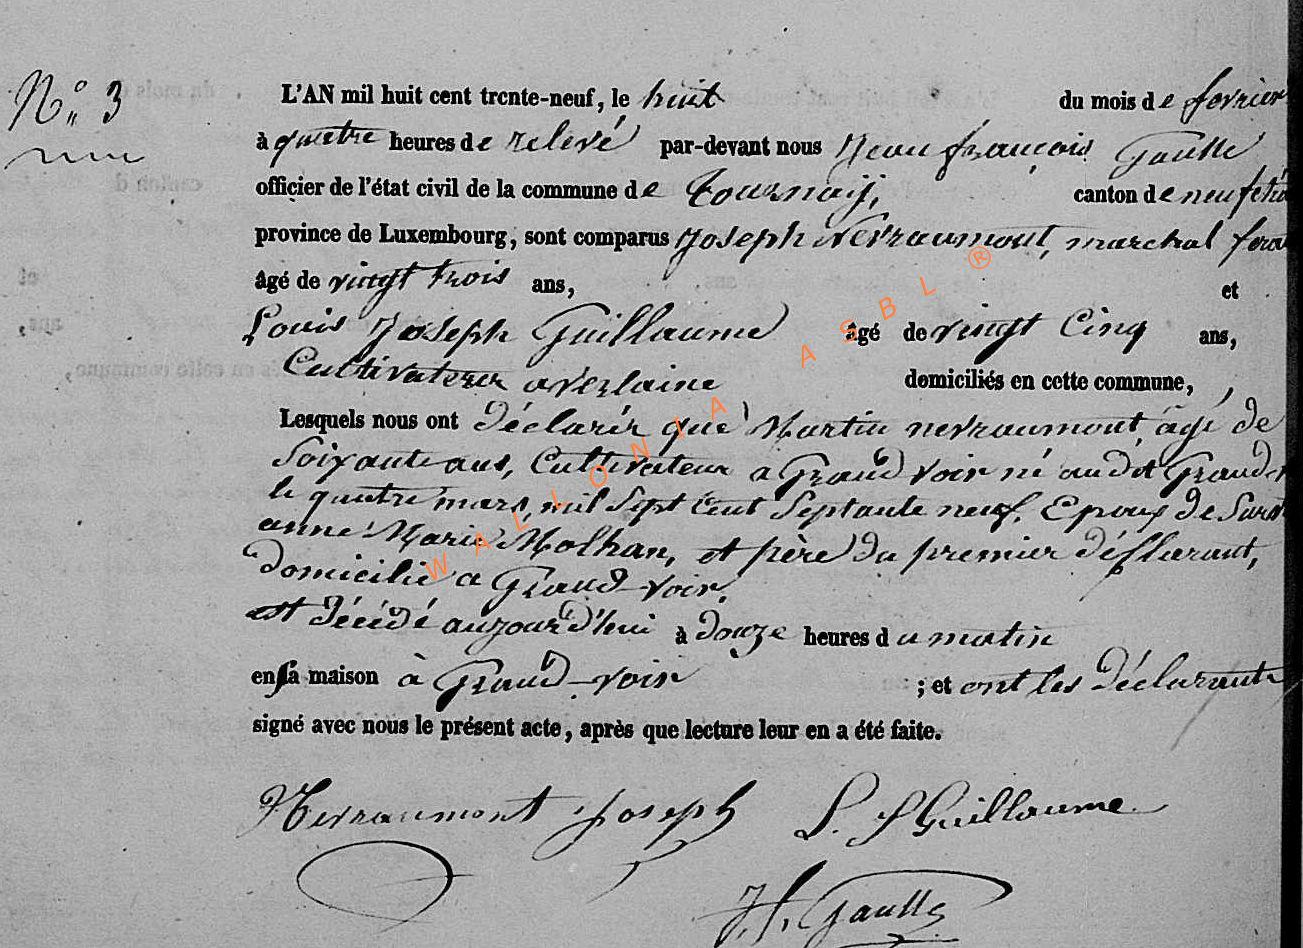 N° 3
L'AN mil huit cent trente-neuf, le huit du mois de fevrier
à quatre heures de relevé par-devant nous Jean françois Gaulle
officier de l'état civil de la commune de Tournaij, canton de neufchâ
province de Luxembourg, sont comparus Joseph Nevraumont, marchal fera
âgé de vingt trois ans, et
Louis Joseph Guillaume âgé de vingt Cinq ans,
Cultivateur a verlaine domiciliés en cette commune,
Lesquels nous ont déclarér que Martin nevraumont, âgé de
Soixante ans, Cultivateur a Grand voir né audit Grand
le quatre mars, mil Sept Cent Septante neuf. Epoux de
anne Marie Molhan, et père du premier déclarant,
domicilié a Grand-voir.
est décédé aujourd'hui à douze heures du matin
en sa maison à Grand-voir ; et ont les déclarants
signé avec nous le présent acte, après que lecture leur en a été faite.
Nevraumont Joseph L. J Guillaume
J. f. Gaulle
WALLONIA ASBL ®